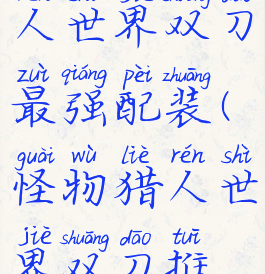 人世界双刀
zuì qiáng pèi zhuāng
最强配装(
guài wù liè rén shì
怪物猎人世
jiè shuāng dāo tuī
界双刀推